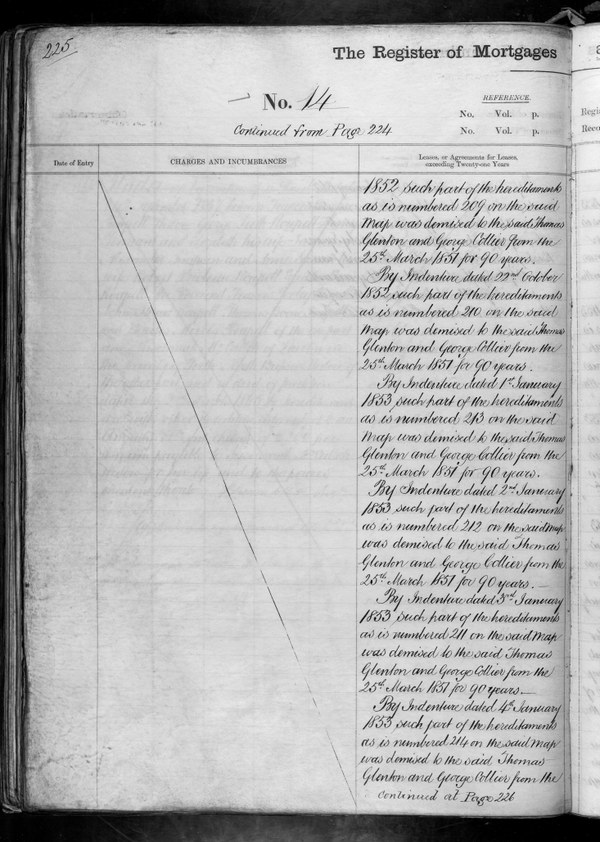 225
The Register of Mortgages
No. 14
REFERENCE.
No. Vol. p.
Continued from Page 224
No. Vol. p.
Date of Entry
CHARGES AND INCUMBRANCES
Leases, or Agreements for Leases,
exceeding Twenty-one Years
1852 such part of the hereditaments
as is numbered 209 on the said
Map was demised to the said Thomas
Glenton and George Collier from the
25th March 1851 for 90 years.
By Indenture dated 22nd October
1852 such part of the hereditaments
as is numbered 210 on the said
Map was demised to the said Thomas
Glenton and George Collier from the
25th March 1851 for 90 years.
By Indenture dated 1st January
1853 such part of the hereditaments
as is numbered 213 on the said
Map was demised to the said Thomas
Glenton and George Collier from the
25th March 1851 for 90 years.
By Indenture dated 2nd January
1853 such part of the hereditaments
as is numbered 212 on the said Map
was demised to the said Thomas
Glenton and George Collier from the
25th March 1851 for 90 years. —
By Indenture dated 3rd January
1853 such part of the hereditaments
as is numbered 211 on the said Map
was demised to the said Thomas
Glenton and George Collier from the
25th March 1851 for 90 years. —
By Indenture dated 4th January
1853 such part of the hereditaments
as is numbered 214 on the said Map
was demised to the said Thomas
Glenton and George Collier from the
Continued at Page 226